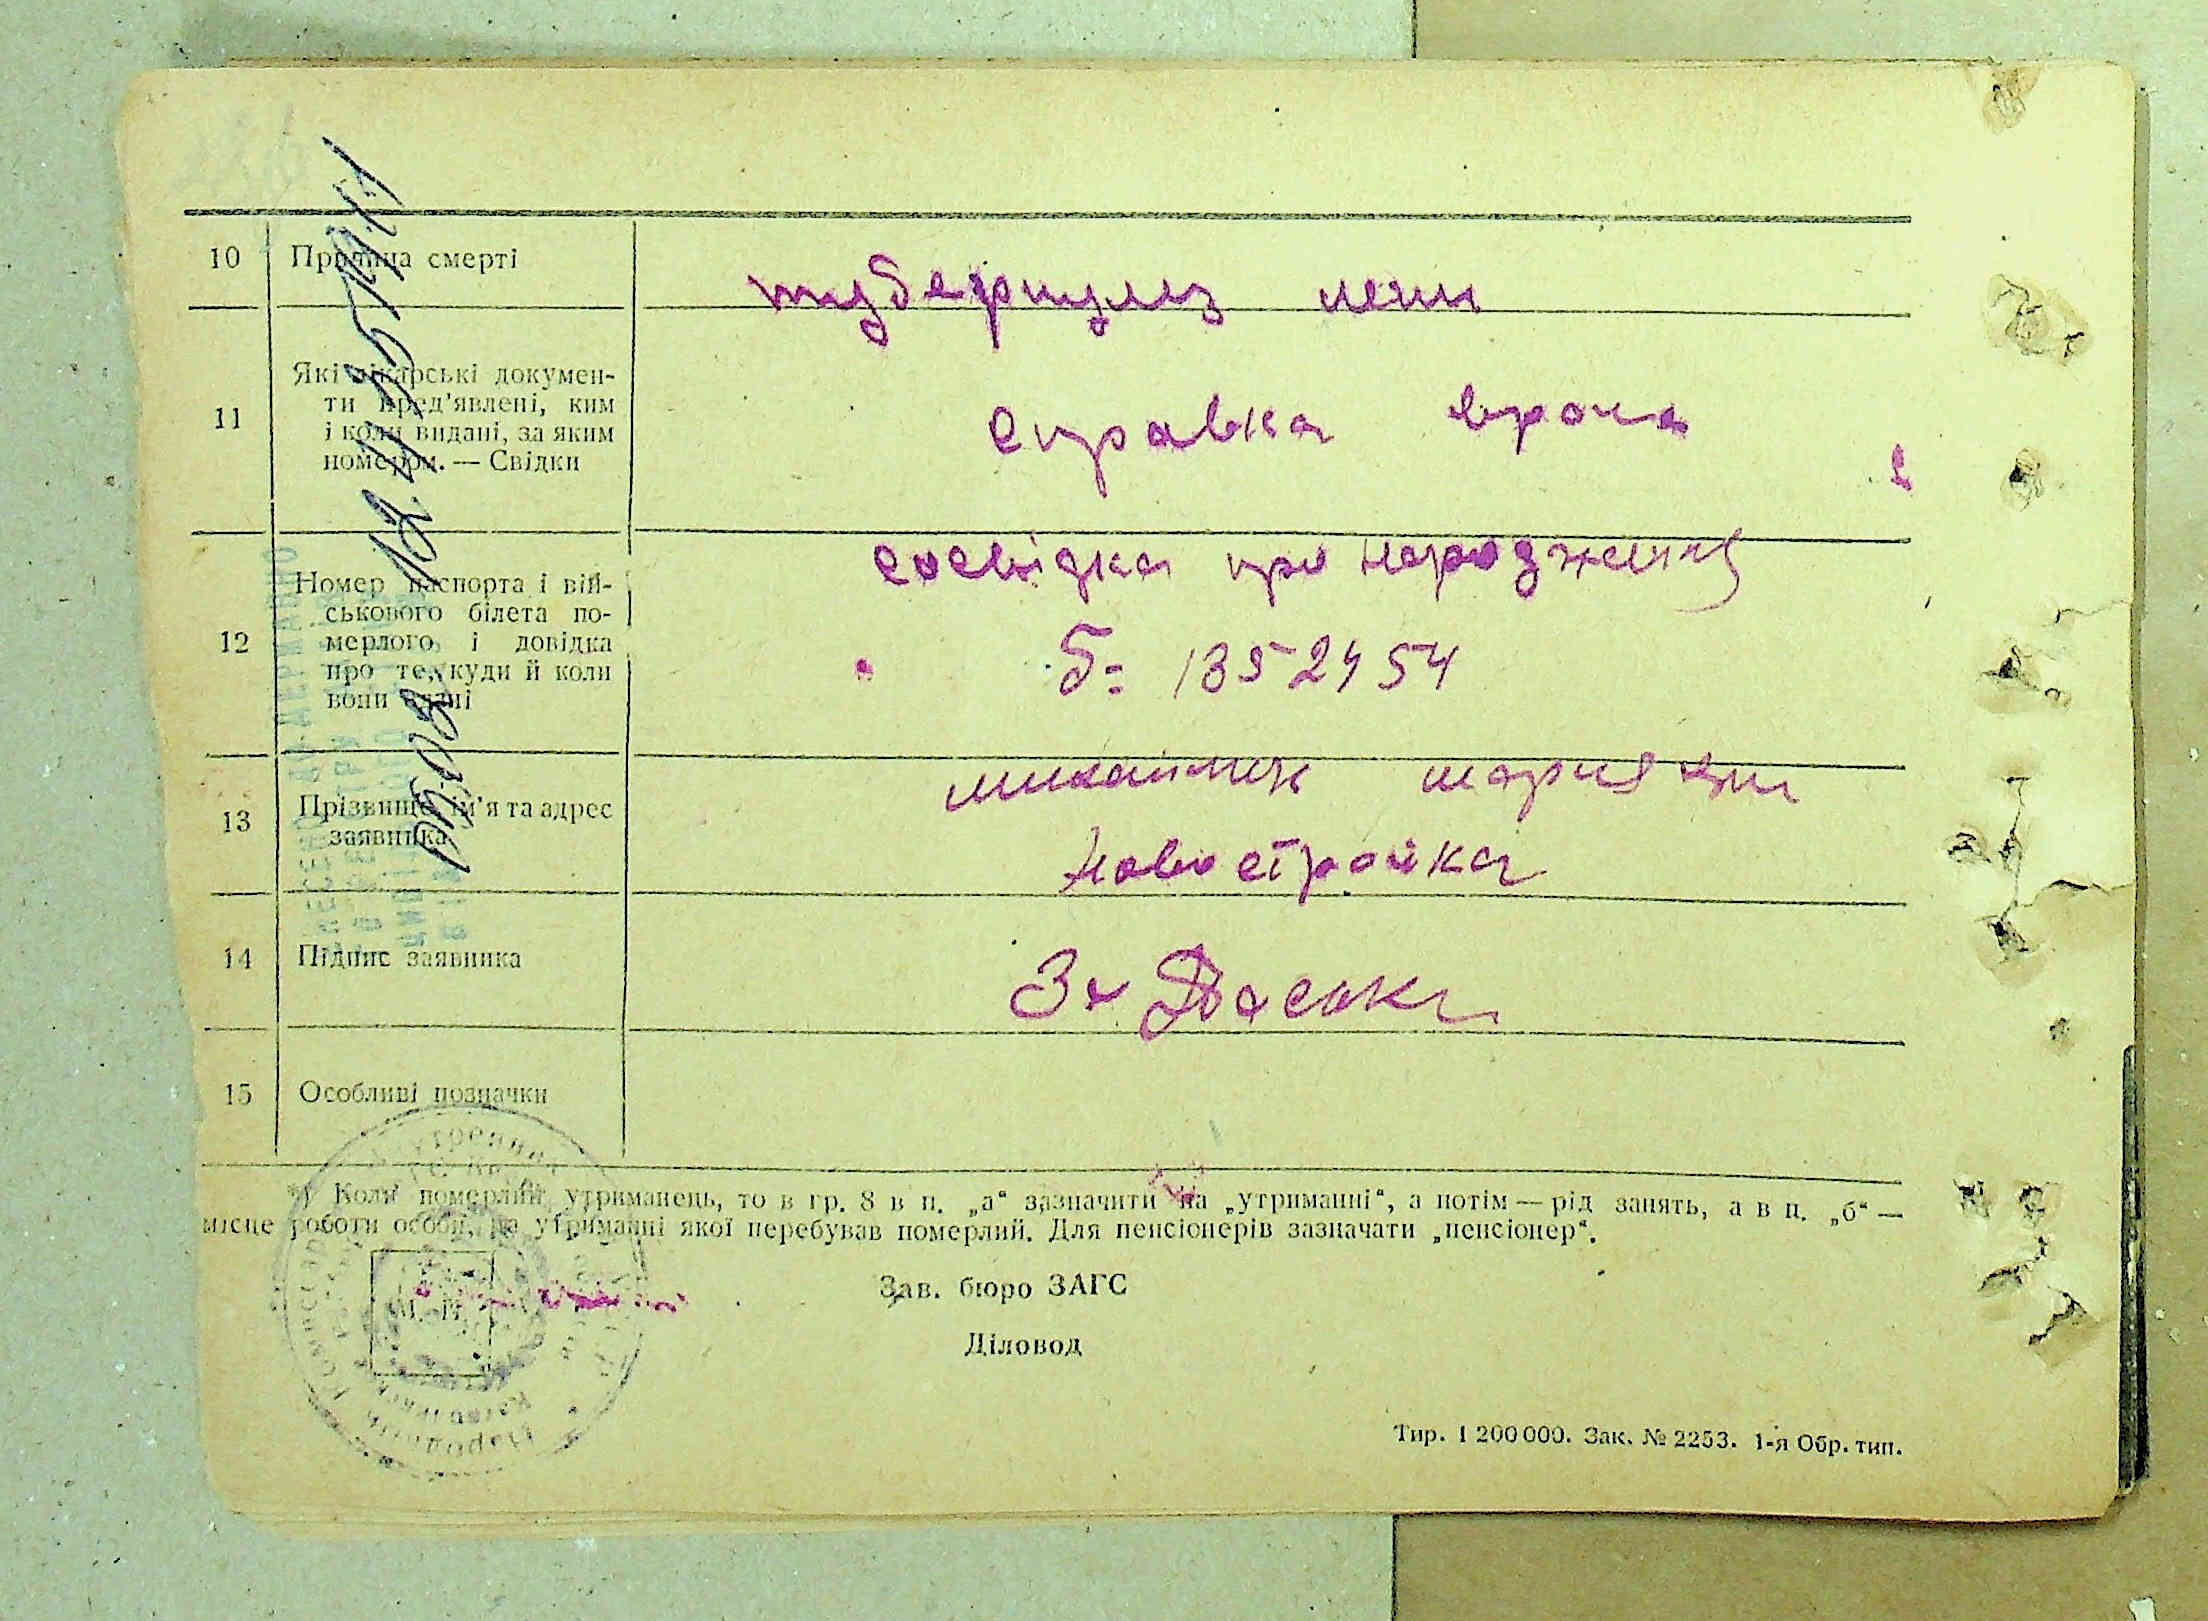 10 Причина смерті
туберкульз
11 Які лікарські докумен-
ти пред'явлені, ким
і коли видані, за яким
номером. — Свідки
справка врача
12 Номер паспорта і вій-
ськового білета по-
мерлого і довідка
про те, куди й коли
вони здані
посвідка про народження
Б= 1352454
13 Прізвище, ім'я та адрес
заявника
Новостройка
14 Підпис заявника
За
15 Особливі позначки
*) Коли померлий утриманець, то в гр. 8 в п. „а“ зазначити на „утриманні“, а потім — рід занять, а в п. „б“ —
місце роботи особи, на утриманні якої перебував померлий. Для пенсіонерів зазначати „пенсіонер“.
М. П.
Зав. бюро ЗАГС
Діловод
Тир. 1 200 000. Зак. № 2253. 1-я Обр. тип.